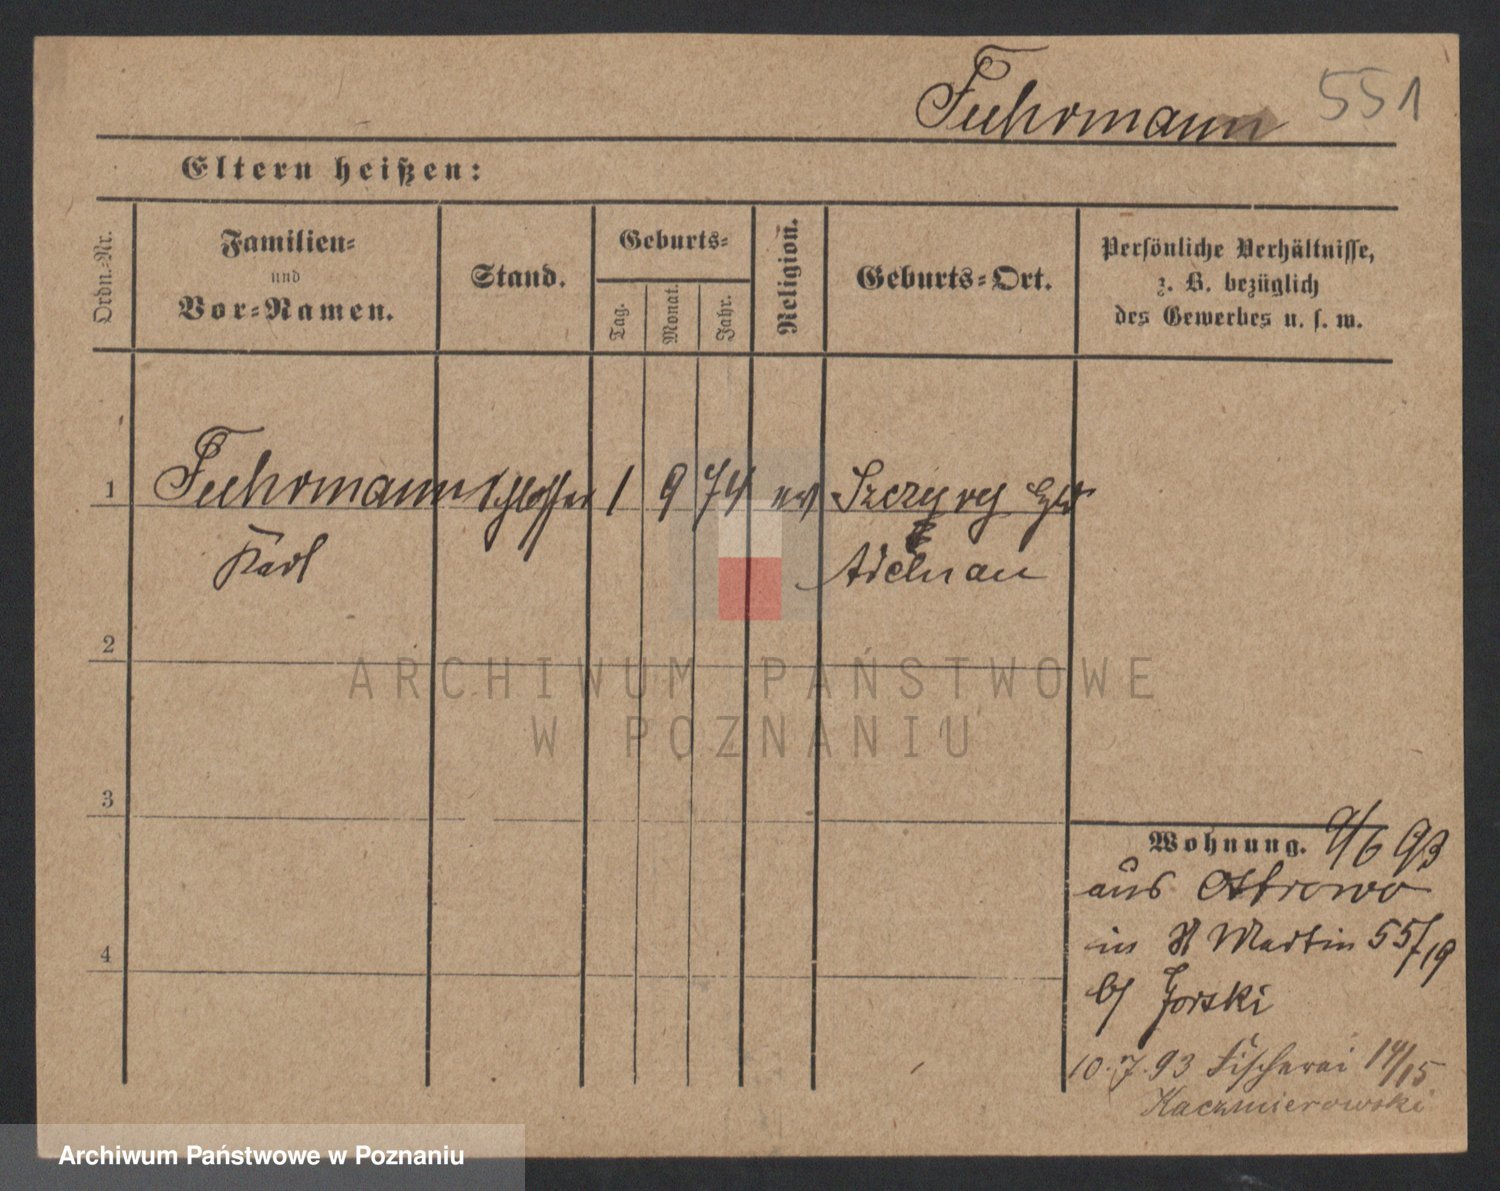 Fuhrmann 551
Eltern heißen:
Ordn.-Nr.
Familien-
und
Vor-Namen.
Stand.
Geburts-
Tag.
Monat.
Jahr.
Religion.
Geburts-Ort.
Persönliche Verhältnisse,
z. B. bezüglich
des Gewerbes u. s. w.
1 Fuhrmann Schlosser 1 9 74 ev
Karl Adelnau
2
3
4
Wohnung. 9/6 93
aus Ostrowo
in St Martin 55/19
b/ Gorski
10.7.93 Fischerei 14/15
Kaczmierowski
ARCHIWUM PAŃSTWOWE
W POZNANIU
Archiwum Państwowe w Poznaniu